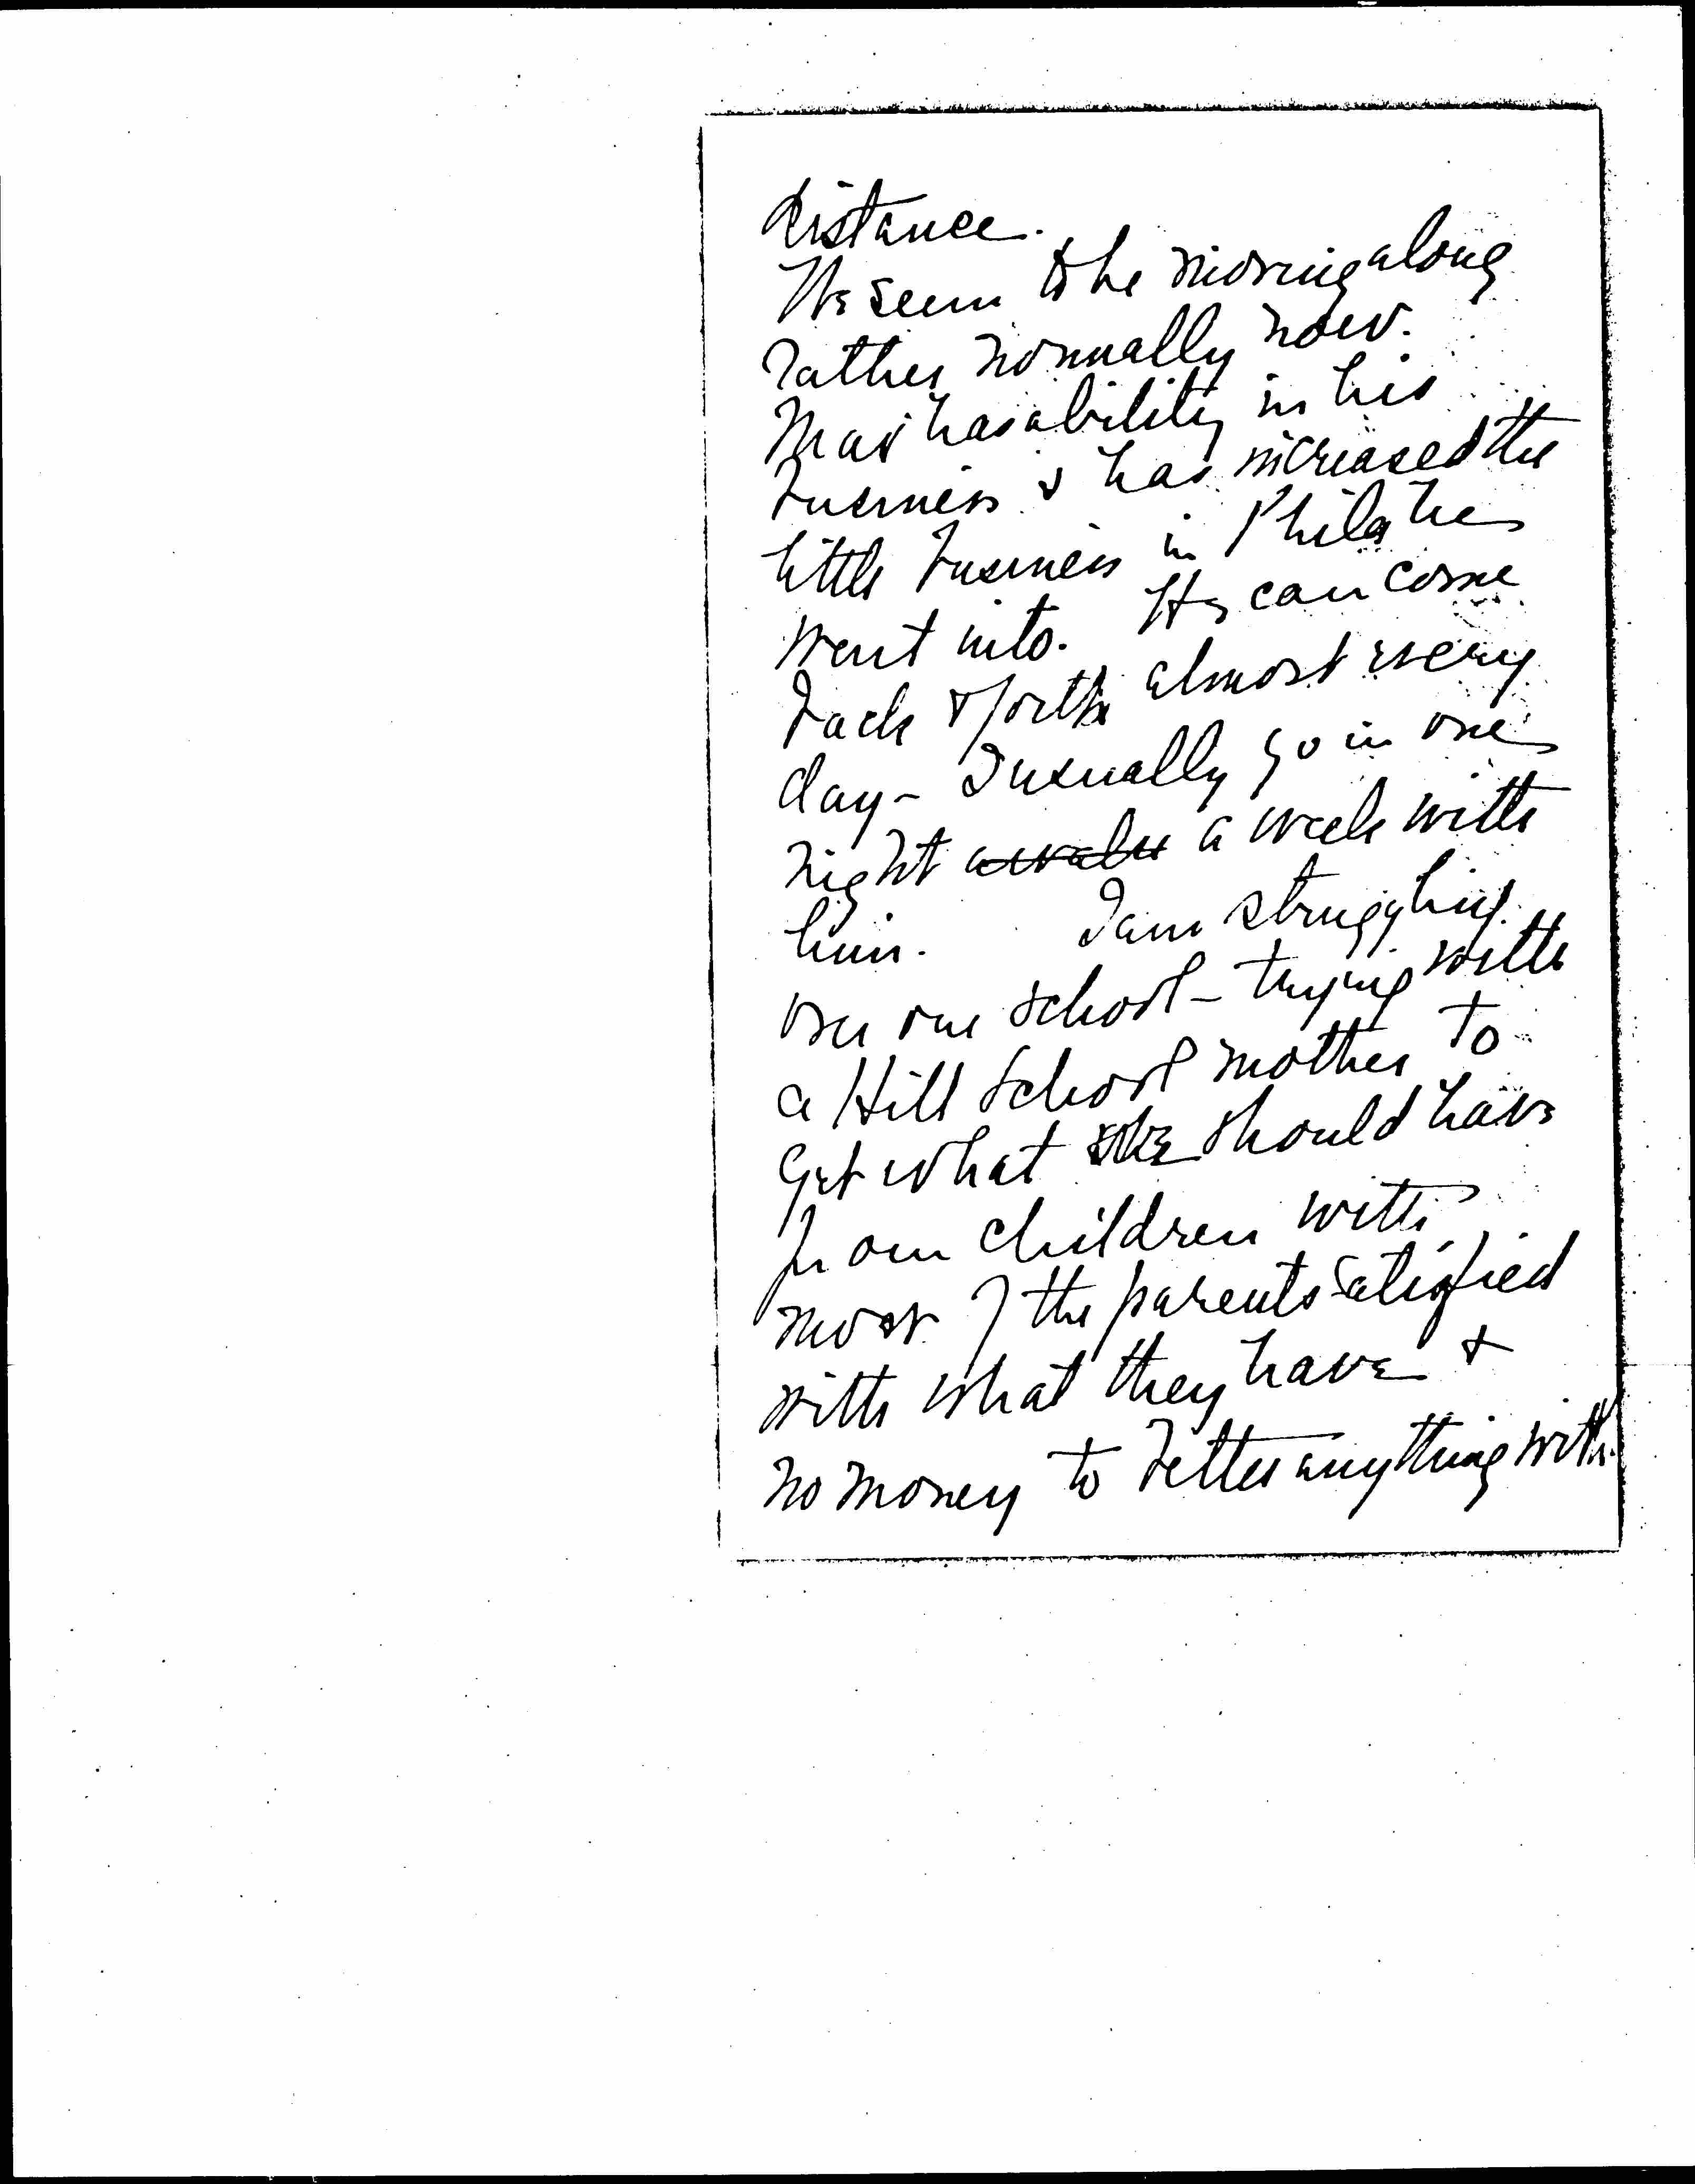 distance.
We seem to be moving along
rather normally now.
Max has ability in his
business & has increased the
little business in Phila he
went into. He can come
back & forth almost every
day - I usually go in one
night a week with
him. I am struggling
over our school - trying with
a Hill School mother to
get what she should have
from children with
most of the parents satisfied
with what they have &
no money to better anything with.